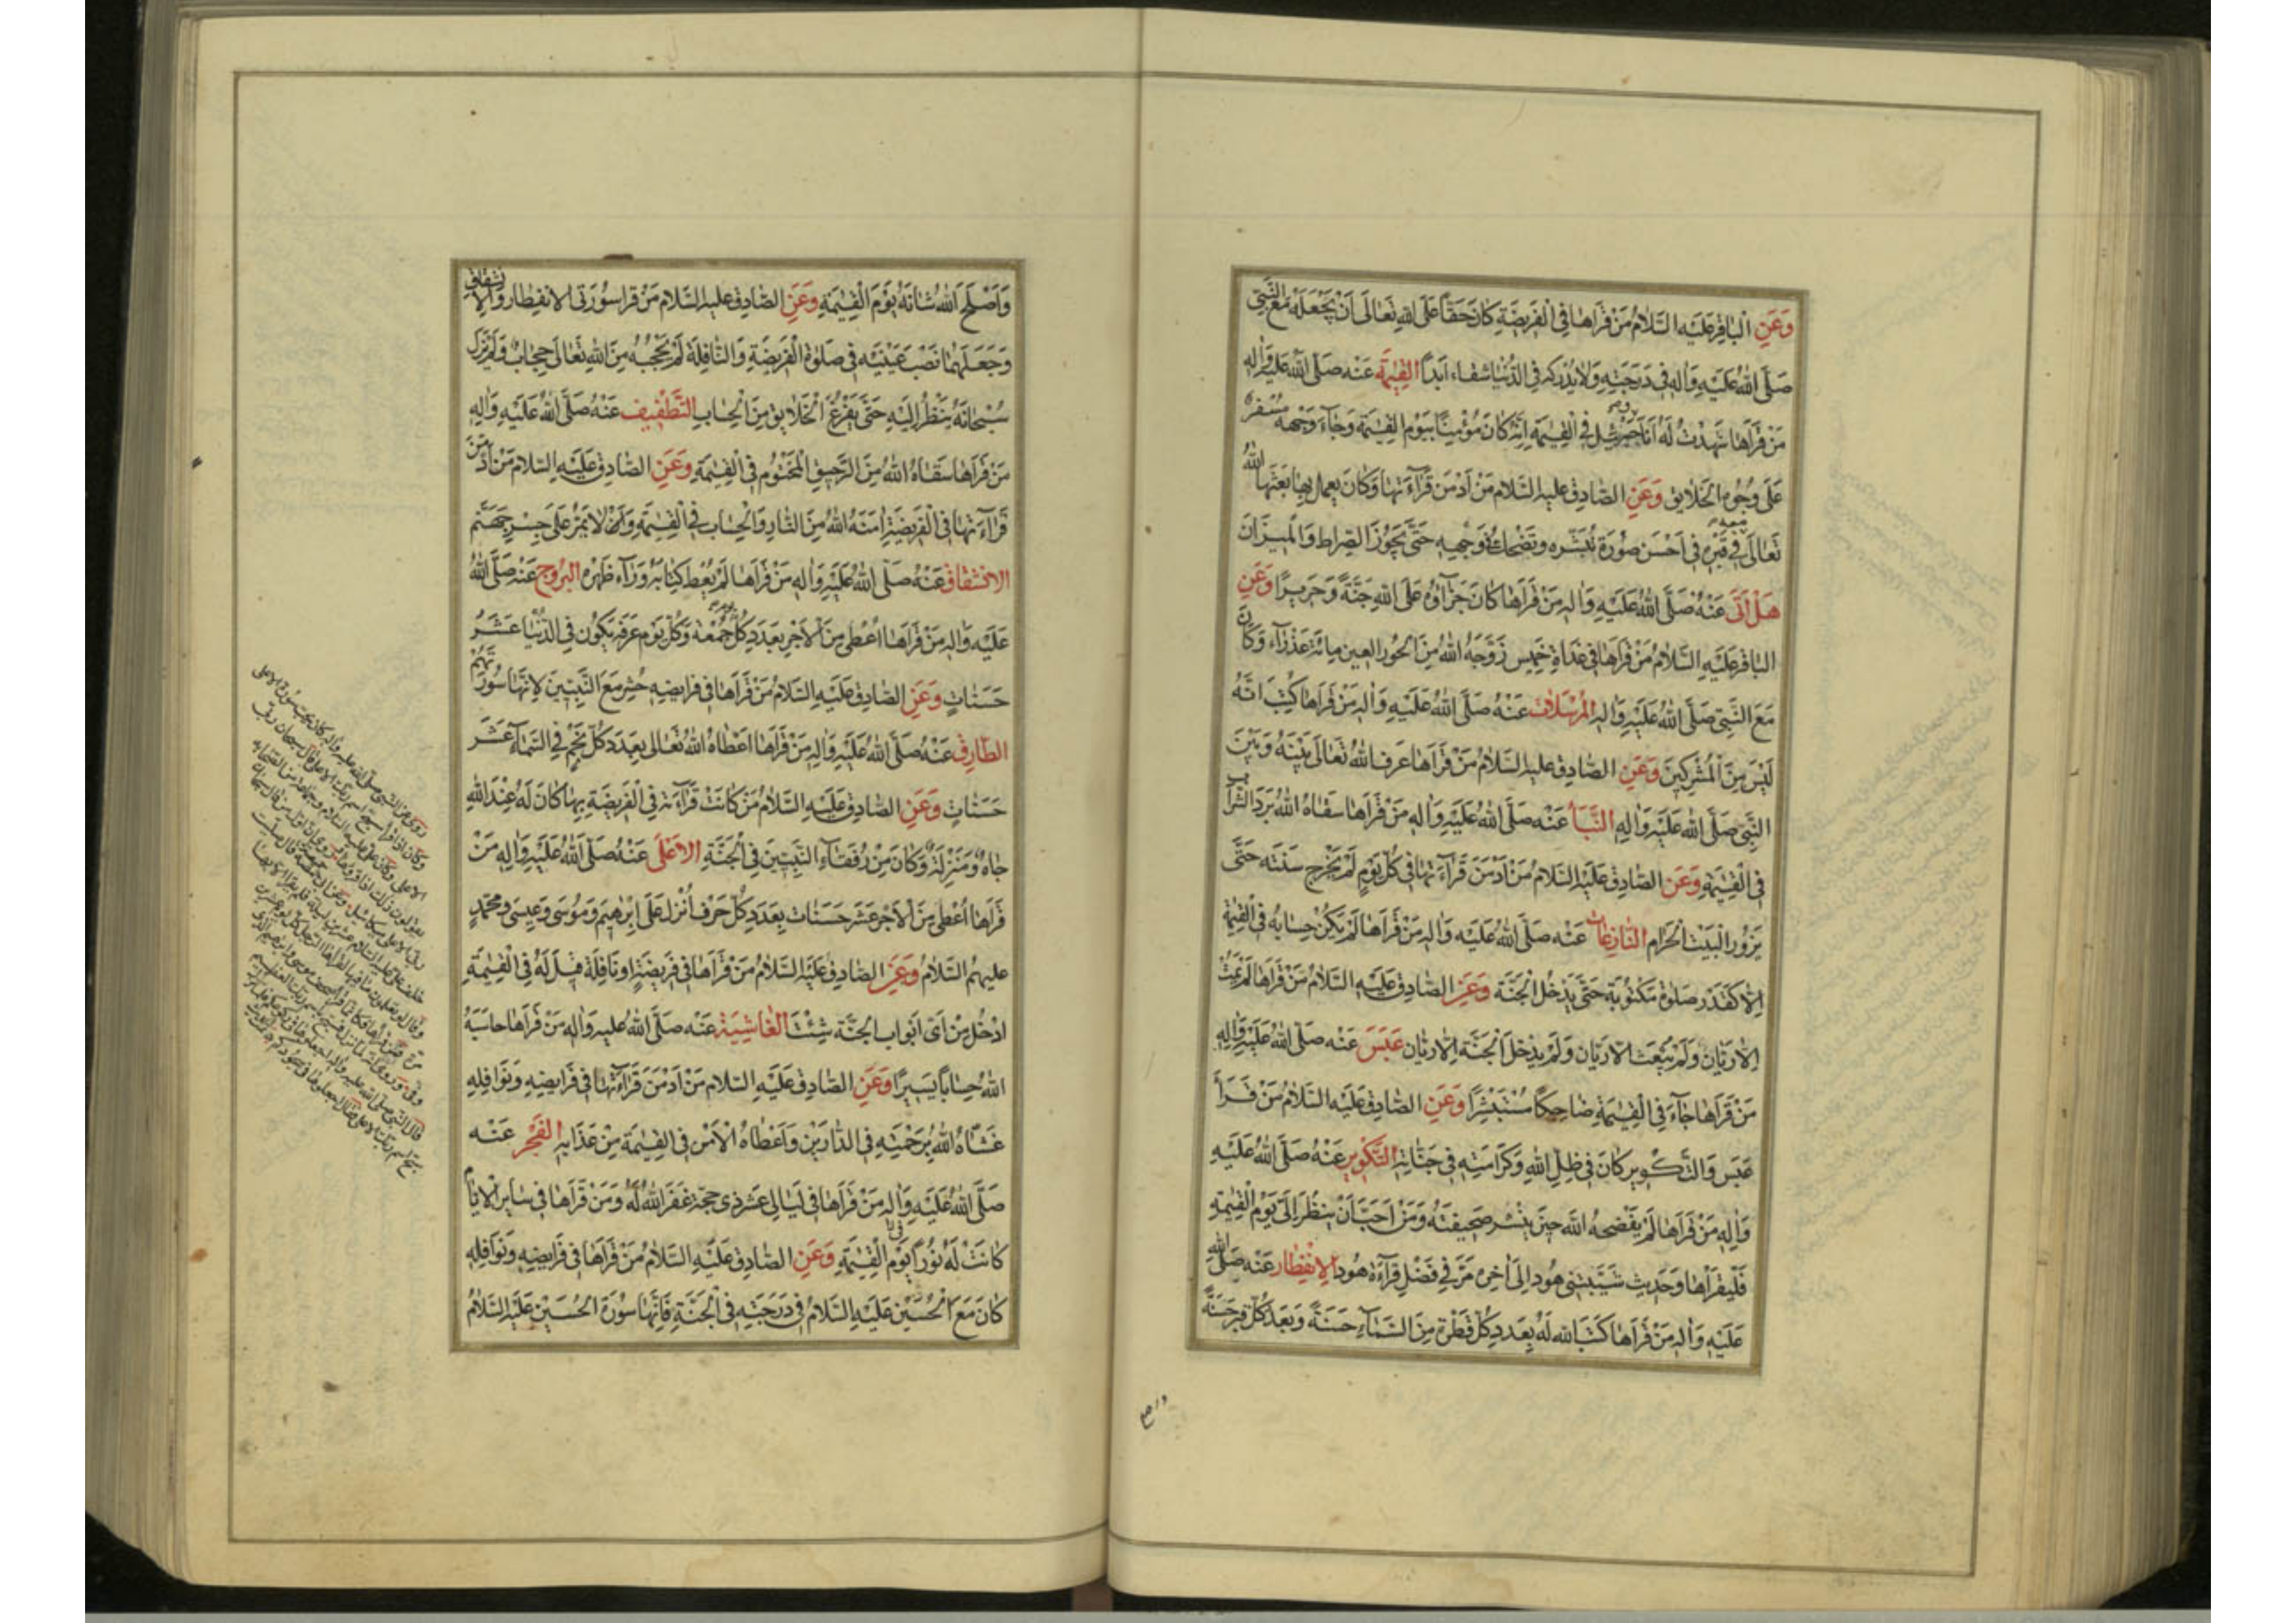 وَعَنِ الْبٰاقِرِ عَلَيْهِ السَّلامُ مَنْ قَرَأَهٰا فِى الْفَرِيضَةِ كٰانَ حَقّاً عَلَى اللهِ تَعٰالَى اَنْ يَجْعَلَهُ مَعَ النَّبِىِّ
صَلَّى اللهُ عَلَيْهِ وَاٰلِهِ فِى دَرَجَتِهِ وَلا يُدْرِكَهُ فِى الدُّنْيٰا شَقٰاء اَبَداً الْقِيٰمَة عَنْهُ صَلَّى اللهُ عَلَيْهِ وَاٰلِهِ
مَنْ قَرَأَهٰا شَهِدْتُ لَهُ اَنَا وَجَبْرَئِيلُ فِى الْقِيٰمَةِ اِنَّهُ كٰانَ مُؤْمِناً بِيَوْمِ الْقِيٰمَةِ وَجٰآءَ وَجْهُهُ مُسْفِرٌ
عَلَى وُجُوهِ الْخَلٰايِقِ وَعَنِ الصّٰادِقِ عَلَيْهِ السَّلامُ مَنْ اَدْمَنَ قَرٰآءَتَهٰا وَكٰانَ يَعْمَلُ بِهٰا بَعَثَهَا اللهُ
تَعٰالَى مَعَهُ فِى قَبْرِهِ فِى اَحْسَنِ صُورَةٍ تُبَشِّرُهُ وَتَضْحَكُ فِى وَجْهِهِ حَتَّى يَجُوزَ الصِّرٰاطَ وَالْمِيزٰانَ
هَلْ اَتَى عَنْهُ صَلَّى اللهُ عَلَيْهِ وَاٰلِهِ مَنْ قَرَأَهٰا كٰانَ جَزٰآؤُهُ عَلَى اللهِ جَنَّةً وَحَرِيراً وَعَنِ
الْبٰاقِرِ عَلَيْهِ السَّلامُ مَنْ قَرَأَهٰا فِى غَدٰاةِ خَمِيسٍ زَوَّجَهُ اللهُ مِنَ الْحُورِ الْعِينِ مِائَةَ عَذْرٰآء وَكٰانَ
مَعَ النَّبِىِّ صَلَّى اللهُ عَلَيْهِ وَاٰلِهِ الْمُرْسَلٰات عَنْهُ صَلَّى اللهُ عَلَيْهِ وَاٰلِهِ مَنْ قَرَأَهٰا كُتِبَ اَنَّهُ
لَيْسَ مِنَ الْمُشْرِكِينَ وَعَنِ الصّٰادِقِ عَلَيْهِ السَّلامُ مَنْ قَرَأَهٰا عَرَّفَ اللهُ تَعٰالَى بَيْنَهُ وَبَيْنَ
النَّبِىِّ صَلَّى اللهُ عَلَيْهِ وَاٰلِهِ النَّبَأ عَنْهُ صَلَّى اللهُ عَلَيْهِ وَاٰلِهِ مَنْ قَرَأَهٰا سَقٰاهُ اللهُ بَرْدَ الشَّرٰابِ
فِى الْقِيٰمَةِ وَعَنِ الصّٰادِقِ عَلَيْهِ السَّلامُ مَنْ اَدْمَنَ قَرٰآءَتَهٰا فِى كُلِّ يَوْمٍ لَمْ يَخْرُجْ سَنَتُهُ حَتَّى
يَزُورَ الْبَيْتَ الْحَرٰامَ النّٰازِعٰات عَنْهُ صَلَّى اللهُ عَلَيْهِ وَاٰلِهِ مَنْ قَرَأَهٰا لَمْ يَكُنْ حِسٰابُهُ فِى الْقِيٰمَةِ
اِلّا كَقَدْرِ صَلٰوةٍ مَكْتُوبَةٍ حَتَّى يَدْخُلَ الْجَنَّةَ وَعَنِ الصّٰادِقِ عَلَيْهِ السَّلامُ مَنْ قَرَأَهٰا لَمْ يَمُتْ
اِلّا رَيّٰان وَلَمْ يُبْعَثْ اِلّا رَيّٰان وَلَمْ يَدْخُلِ الْجَنَّةَ اِلّا رَيّٰان عَبَسَ عَنْهُ صَلَّى اللهُ عَلَيْهِ وَاٰلِهِ
مَنْ قَرَأَهٰا جٰآءَ فِى الْقِيٰمَةِ ضٰاحِكاً مُسْتَبْشِراً وَعَنِ الصّٰادِقِ عَلَيْهِ السَّلامُ مَنْ قَرَأَ
عَبَسَ وَالتَّكْوِيرِ كٰانَ فِى ظِلِّ اللهِ وَكَرٰامَتِهِ فِى جَنّٰاتِهِ التَّكْوِير عَنْهُ صَلَّى اللهُ عَلَيْهِ
وَاٰلِهِ مَنْ قَرَأَهٰا لَمْ يَفْضَحْهُ اللهُ حِينَ يُنْشَرُ صَحِيفَتُهُ وَمَنْ اَحَبَّ اَنْ يَنْظُرَ اِلَىَّ يَوْمَ الْقِيٰمَةِ
فَلْيَقْرَأْهٰا وَحَدِيثُ شَيَّبَتْنِى هُود اِلَى اٰخِرِهِ مَرَّ فِى فَضْلِ قِرٰآءَةِ هُود الْاِنْفِطٰار عَنْهُ صَلَّى اللهُ
عَلَيْهِ وَاٰلِهِ مَنْ قَرَأَهٰا كَتَبَ اللهُ لَهُ بِعَدَدِ كُلِّ قَطْرَةٍ مِنَ السَّمٰآءِ حَسَنَةً وَبِعَدَدِ كُلِّ قَبْرٍ حَسَنَةً
وَاَصْلَحَ اللهُ شٰانَهُ يَوْمَ الْقِيٰمَةِ وَعَنِ الصّٰادِقِ عَلَيْهِ السَّلامُ مَنْ قَرَأَ سُورَتَى الْاِنْفِطٰارِ وَالْاِنْشِقٰاقِ
وَجَعَلَهُمٰا نَصْبَ عَيْنَيْهِ فِى صَلٰوةِ الْفَرِيضَةِ وَالنّٰافِلَةِ لَمْ يَحْجُبْهُ مِنَ اللهِ تَعٰالَى حِجٰابٌ وَلَمْ يَزَلْ
سُبْحٰانَهُ يَنْظُرُ اِلَيْهِ حَتَّى يَفْرُغَ الْخَلٰايِقُ مِنَ الْحِسٰابِ التَّطْفِيف عَنْهُ صَلَّى اللهُ عَلَيْهِ وَاٰلِهِ
مَنْ قَرَأَهٰا سَقٰاهُ اللهُ مِنَ الرَّحِيقِ الْمَخْتُومِ فِى الْقِيٰمَةِ وَعَنِ الصّٰادِقِ عَلَيْهِ السَّلامُ مَنْ اَدْمَنَ
قَرٰآءَتَهٰا فِى الْفَرِيضَةِ اٰمَنَهُ اللهُ مِنَ النّٰارِ وَالْحِسٰابِ فِى الْقِيٰمَةِ وَلا يَمُرُّ عَلَى جِسْرِ جَهَنَّمَ
الْاِنْشِقٰاق عَنْهُ صَلَّى اللهُ عَلَيْهِ وَاٰلِهِ مَنْ قَرَأَهٰا لَمْ يُعْطَ كِتٰابَهُ وَرٰآءَ ظَهْرِهِ الْبُرُوج عَنْهُ صَلَّى اللهُ
عَلَيْهِ وَاٰلِهِ مَنْ قَرَأَهٰا اُعْطِىَ مِنَ الْاَجْرِ بِعَدَدِ كُلِّ يَوْمِ جُمْعَةٍ وَكُلِّ يَوْمِ عَرَفَةٍ يَكُونُ فِى الدُّنْيٰا عَشَرُ
حَسَنٰاتٍ وَعَنِ الصّٰادِقِ عَلَيْهِ السَّلامُ مَنْ قَرَأَهٰا فِى فَرٰايِضِهِ حُشِرَ مَعَ النَّبِيِّينَ لِاَنَّهٰا سُورَتُهُمْ
الطّٰارِق عَنْهُ صَلَّى اللهُ عَلَيْهِ وَاٰلِهِ مَنْ قَرَأَهٰا اَعْطٰاهُ اللهُ تَعٰالَى بِعَدَدِ كُلِّ نَجْمٍ فِى السَّمٰآءِ عَشَرَ
حَسَنٰاتٍ وَعَنِ الصّٰادِقِ عَلَيْهِ السَّلامُ مَنْ كٰانَتْ قَرٰآءَتُهُ فِى الْفَرِيضَةِ بِهٰا كٰانَ لَهُ عِنْدَ اللهِ
جٰاهٌ وَمَنْزِلَةٌ وَكٰانَ مِنْ رُفَقٰآءِ النَّبِيِّينَ فِى الْجَنَّةِ الْاَعْلَى عَنْهُ صَلَّى اللهُ عَلَيْهِ وَاٰلِهِ مَنْ
قَرَأَهٰا اُعْطِىَ مِنَ الْاَجْرِ عَشَرَ حَسَنٰاتٍ بِعَدَدِ كُلِّ حَرْفٍ اُنْزِلَ عَلَى اِبْرٰهِيمَ وَمُوسَى وَعِيسَى وَمُحَمَّدٍ
عَلَيْهِمُ السَّلامُ وَعَنِ الصّٰادِقِ عَلَيْهِ السَّلامُ مَنْ قَرَأَهٰا فِى فَرِيضَةٍ اَوْ نٰافِلَةٍ قِيلَ لَهُ فِى الْقِيٰمَةِ
ادْخُلْ مِنْ اَىِّ اَبْوٰابِ الْجَنَّةِ شِئْتَ الْغٰاشِيَة عَنْهُ صَلَّى اللهُ عَلَيْهِ وَاٰلِهِ مَنْ قَرَأَهٰا حٰاسَبَهُ
اللهُ حِسٰاباً يَسِيراً وَعَنِ الصّٰادِقِ عَلَيْهِ السَّلامُ مَنْ اَدْمَنَ قَرٰآءَتَهٰا فِى فَرٰايِضِهِ وَنَوٰافِلِهِ
غَشّٰاهُ اللهُ بِرَحْمَتِهِ فِى الدّٰارَيْنِ وَاَعْطٰاهُ الْاَمْنَ فِى الْقِيٰمَةِ مِنْ عَذٰابِهِ الْفَجْر عَنْهُ
صَلَّى اللهُ عَلَيْهِ وَاٰلِهِ مَنْ قَرَأَهٰا فِى لَيٰالِى عَشْرِ ذِى حِجَّةٍ غَفَرَ اللهُ لَهُ وَمَنْ قَرَأَهٰا فِى سٰايِرِ الْاَيّٰامِ
كٰانَتْ لَهُ نُوراً فِى يَوْمِ الْقِيٰمَةِ وَعَنِ الصّٰادِقِ عَلَيْهِ السَّلامُ مَنْ قَرَأَهٰا فِى فَرٰايِضِهِ وَنَوٰافِلِهِ
كٰانَ مَعَ الْحُسَيْنِ عَلَيْهِ السَّلامُ فِى دَرَجَتِهِ فِى الْجَنَّةِ فَاِنَّهٰا سُورَةُ الْحُسَيْنِ عَلَيْهِ السَّلامُ